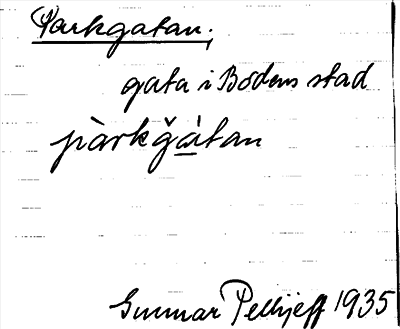 Parkgatan,
gata i Bodens stad
pàrkğȧ̲tan
Gunnar Pellijeff 1935